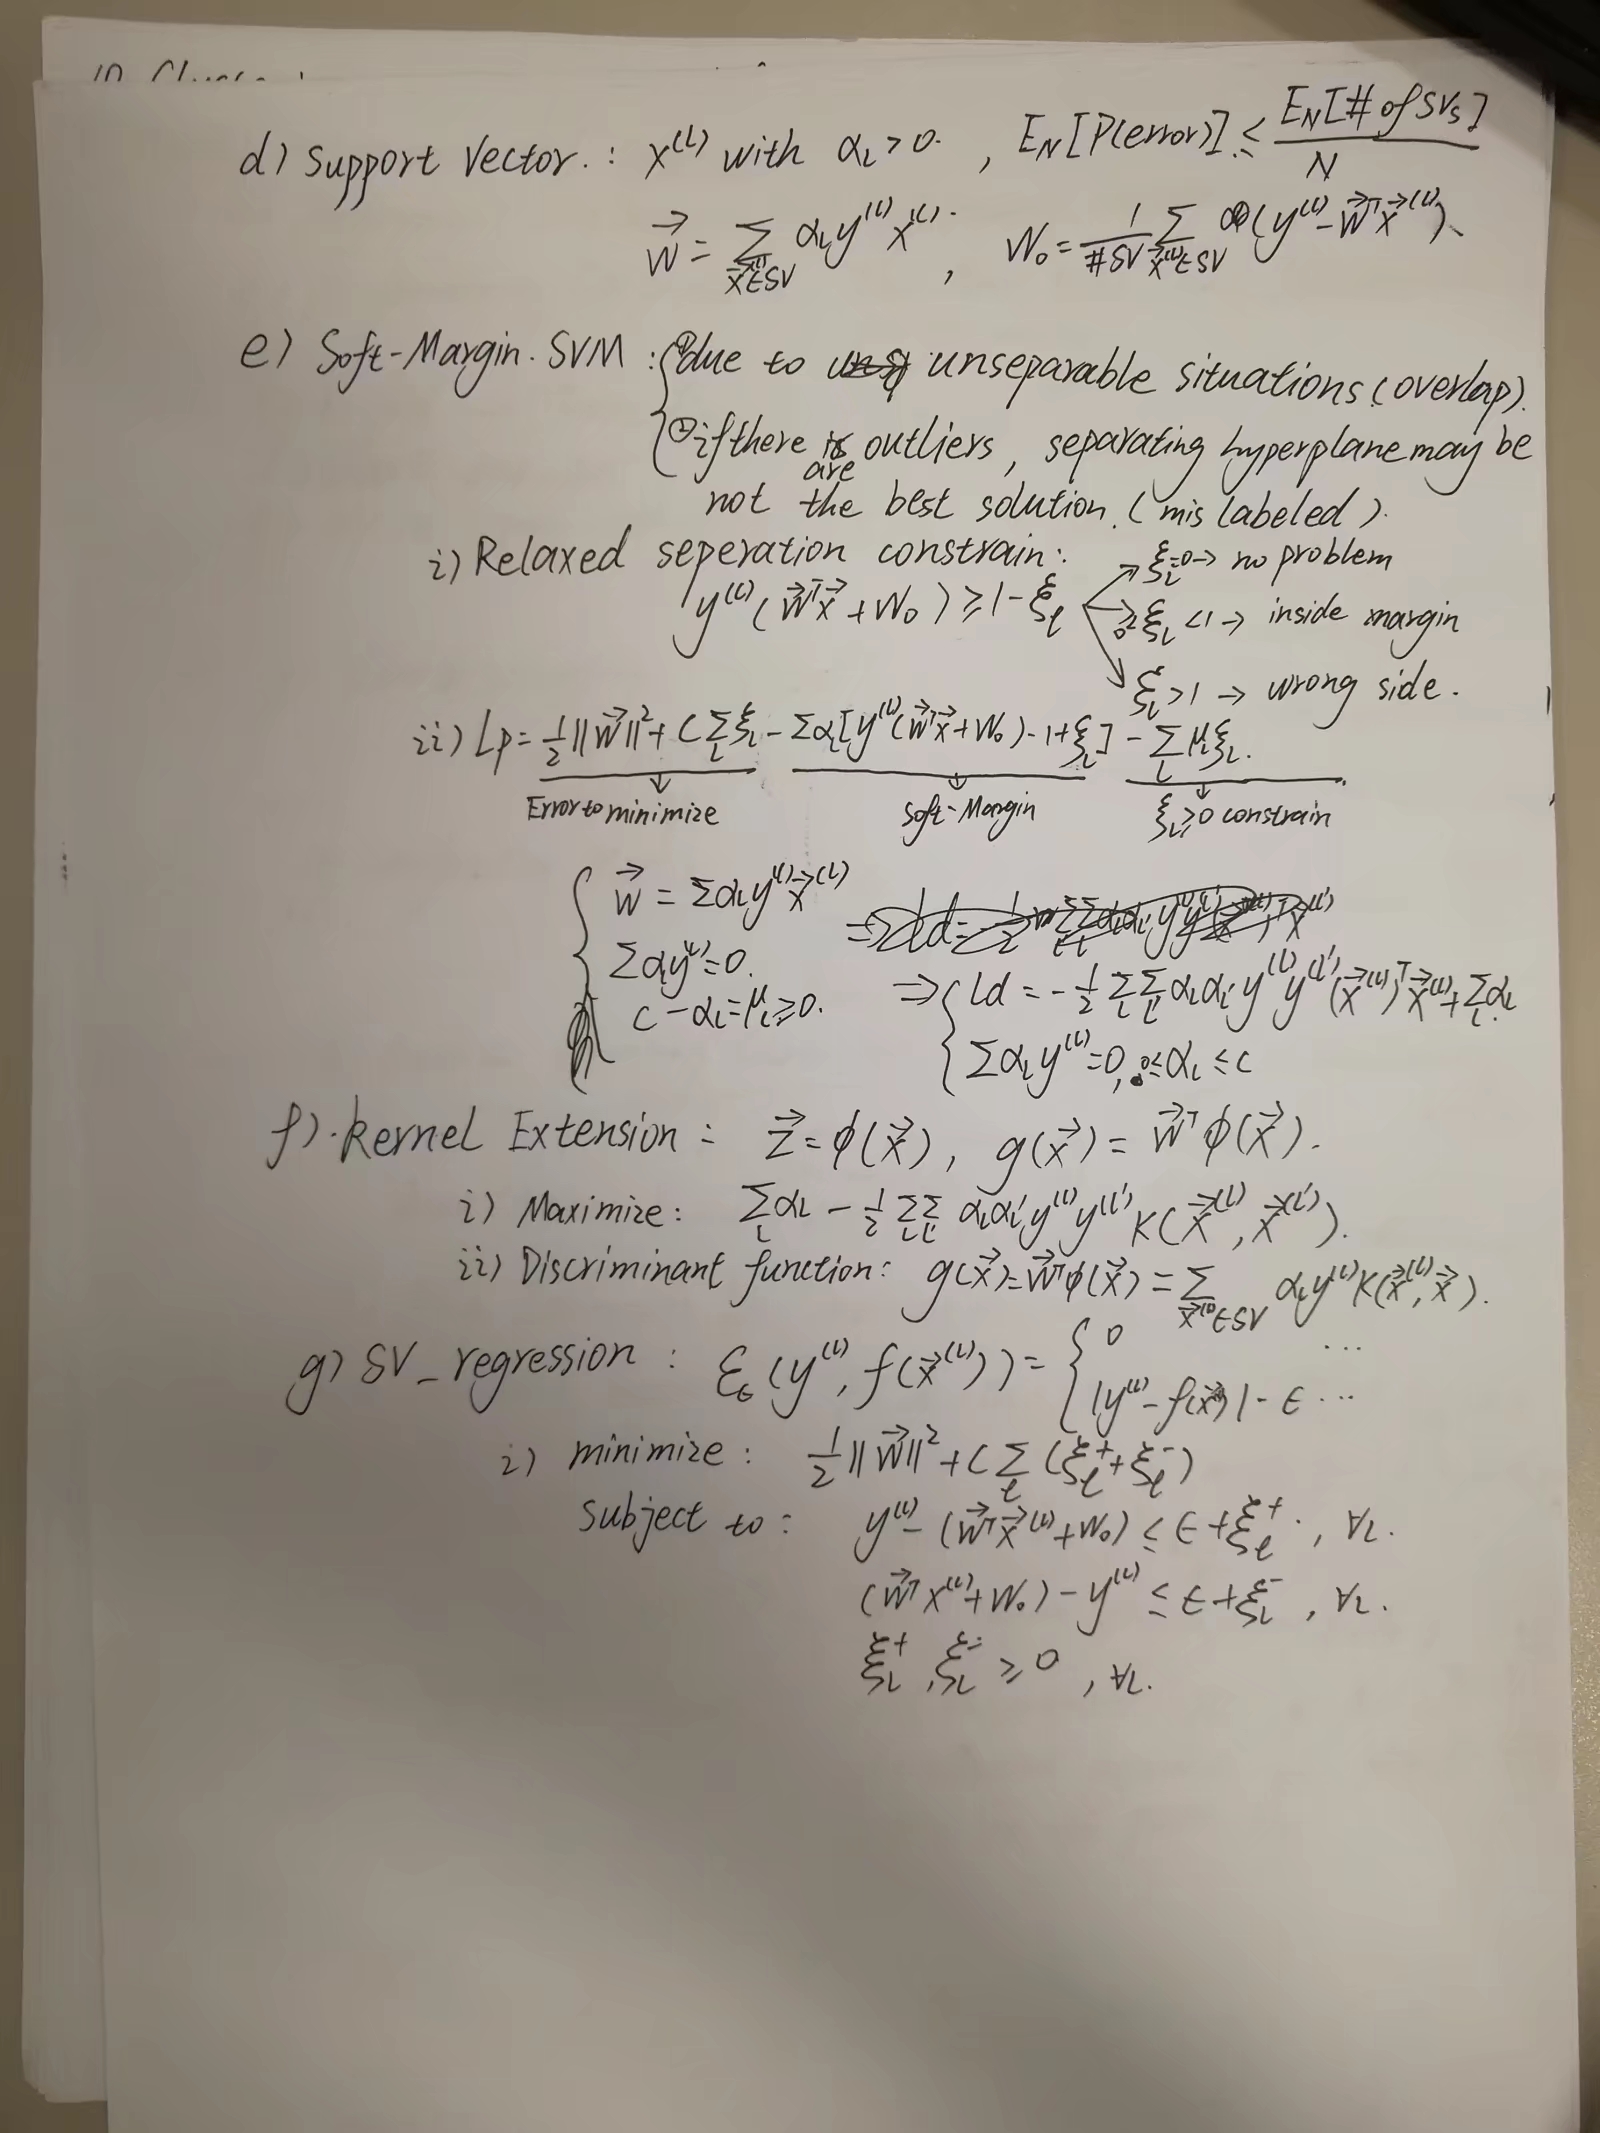 d) Support Vector. : x^(l) with α_l > 0. , E_N[P(error)] ≤ E_N[# of SVs] / N
w⃗ = Σ_{x⃗^(l)∈SV} α_l y^(l) x^(l) . , W₀ = 1/#SV Σ_{x⃗^(l)∈SV} (y^(l) - w⃗ᵀx⃗^(l)).
e) Soft-Margin. SVM : { ① due to unseparable situations (overlap).
② if there are outliers, separating hyperplane may be
not the best solution. (mis labeled).
i) Relaxed seperation constrain:
y^(l) (w⃗ᵀx⃗ + W₀) ≥ 1 - ξ_l
ξ_l=0 → no problem
0≤ξ_l<1 → inside margin
ξ_l>1 → wrong side.
ii) Lp = ½||w⃗||² + C Σ_l ξ_l - Σα_l[y^(l)(w⃗ᵀx⃗ + W₀) - 1 + ξ_l] - Σ_l μ_l ξ_l.
Error to minimize
Soft-Margin
ξ_l≥0 constrain
{ w⃗ = Σα_l y^(l) x⃗^(l)
Σα_l y^(l) = 0.
C - α_l = μ_l ≥ 0.
⇒ { Ld = -½ Σ_l Σ_l' α_l α_l' y^(l) y^(l') (x⃗^(l))ᵀ x⃗^(l) + Σ_l α_l
Σα_l y^(l) = 0, 0 ≤ α_l ≤ C
f). Kernel Extension : z⃗ = φ(x⃗), g(x⃗) = w⃗ᵀφ(x⃗).
i) Maximize: Σ_l α_l - ½ Σ_l Σ_l' α_l α_l' y^(l) y^(l') K(x⃗^(l), x⃗^(l')).
ii) Discriminant function: g(x⃗) = w⃗ᵀφ(x⃗) = Σ_{x⃗^(l)∈SV} α_l y^(l) K(x⃗^(l), x⃗).
g) SV_regression : ℰ_ϵ (y^(l), f(x⃗^(l))) = { 0 ...
|y^(l) - f(x⃗)| - ϵ ...
i) minimize : ½||w⃗||² + C Σ_l (ξ_l⁺ + ξ_l⁻)
subject to : y^(l) - (w⃗ᵀx⃗^(l) + W₀) ≤ ϵ + ξ_l⁺ . , ∀l.
(w⃗ᵀx^(l) + W₀) - y^(l) ≤ ϵ + ξ_l⁻ , ∀l.
ξ_l⁺, ξ_l⁻ ≥ 0 , ∀l.